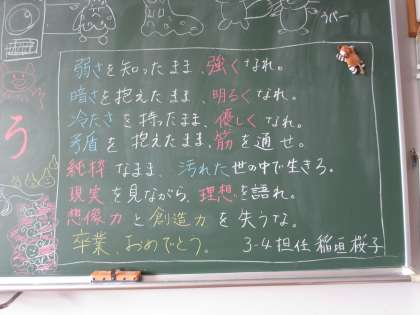 うパー
弱さを知ったまま、強くなれ。
暗さを抱えたまま、明るくなれ。
冷たさを持ったまま、優しくなれ。
矛盾を抱えたまま、筋を通せ。
純粋なまま、汚れた世の中で生きろ。
現実を見ながら、理想を語れ。
想像力と創造力を失うな。
卒業、おめでとう。 3-4担任 稲垣桜子
ろ